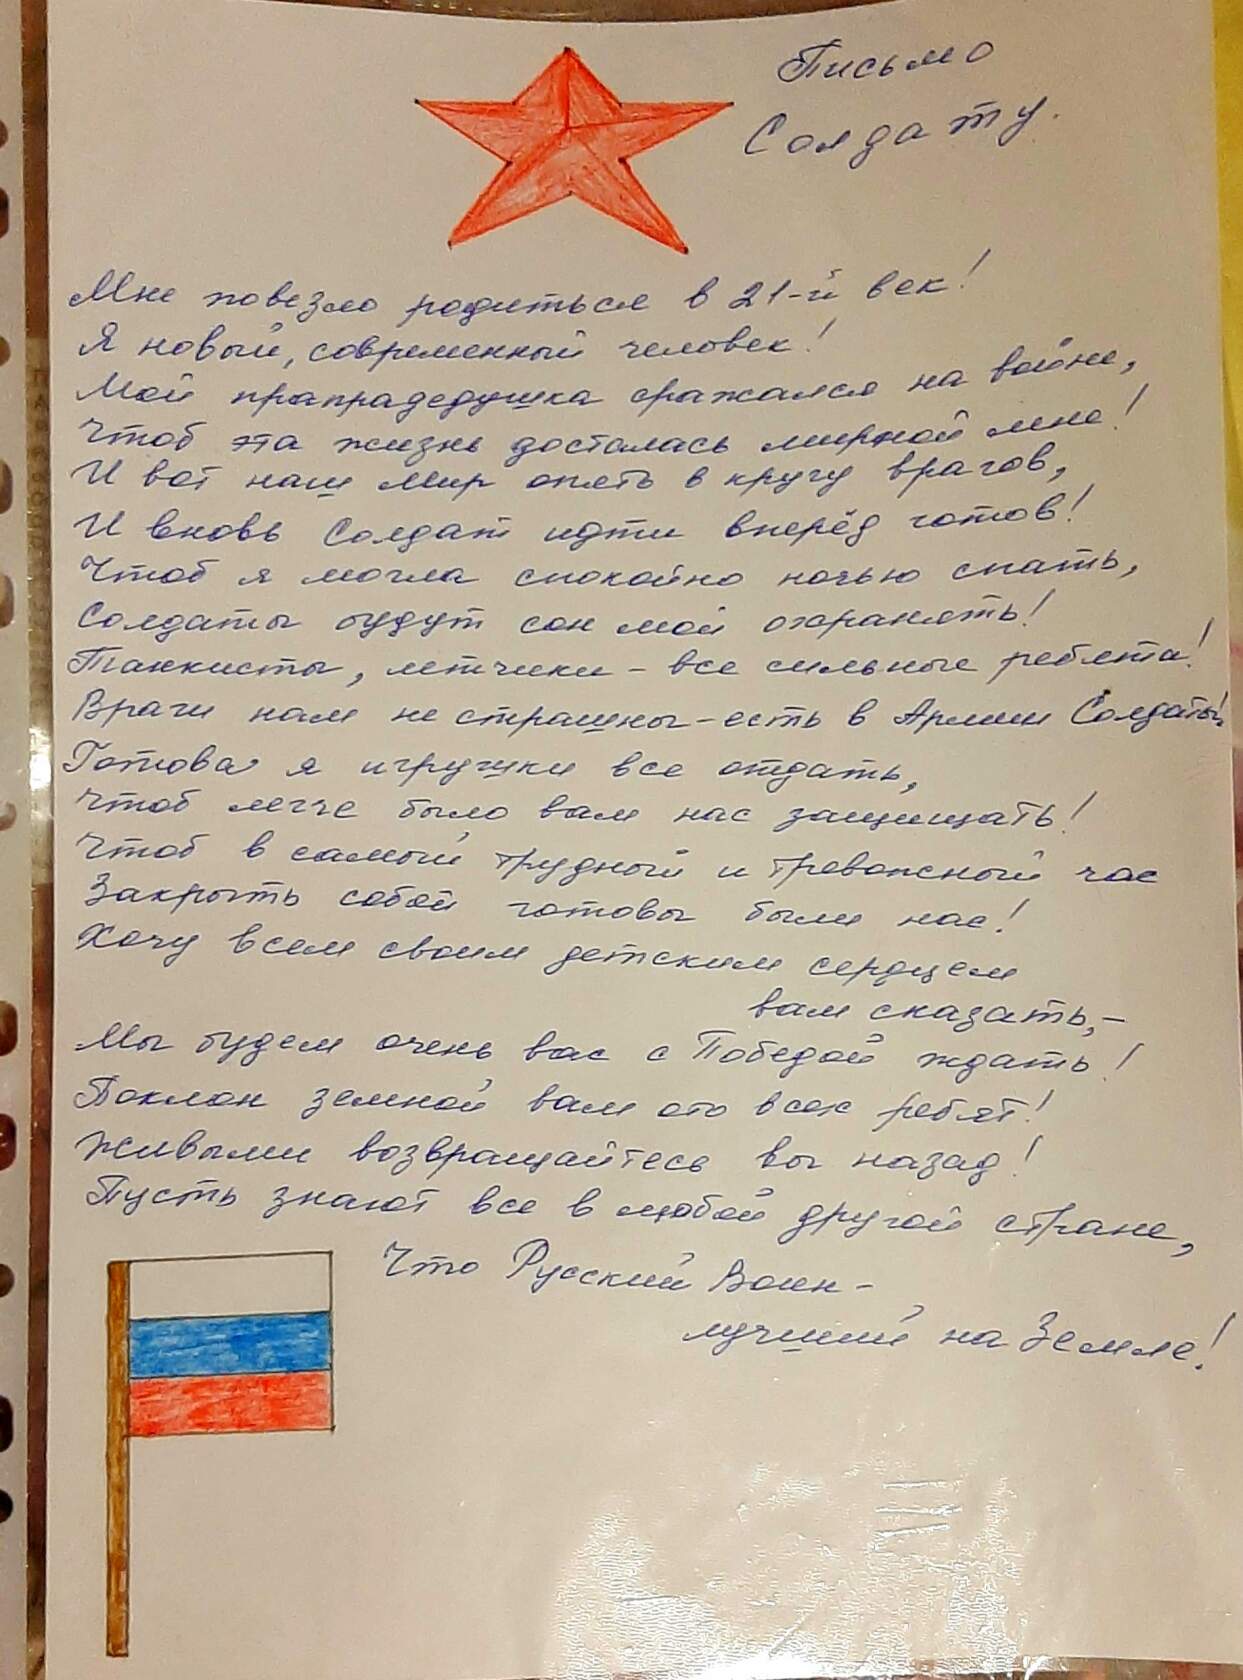 Письмо
Солдату.
Мне повезло родиться в 21-й век!
Я новый, современный человек!
Мой прапрадедушка сражался на войне,
Чтоб эта жизнь досталась мирной мне!
И вот наш мир опять в кругу врагов,
И вновь Солдат идти вперёд готов!
Чтоб я могла спокойно ночью спать,
Солдаты будут сон мой охранять!
Танкисты, летчики - все сильные ребята!
Враги нам не страшны - есть в Армии Солдаты!
Готова я игрушки все отдать,
Чтоб легче было вам нас защищать!
Чтоб в самый трудный и тревожный час
Закрыть собой готовы были нас!
Хочу всем своим детским сердцем
вам сказать, -
Мы будем очень вас с Победой ждать!
Поклон земной вам ото всех ребят!
Живыми возвращайтесь вы назад!
Пусть знают все в любой другой стране,
Что Русский Воин -
лучший на Земле!